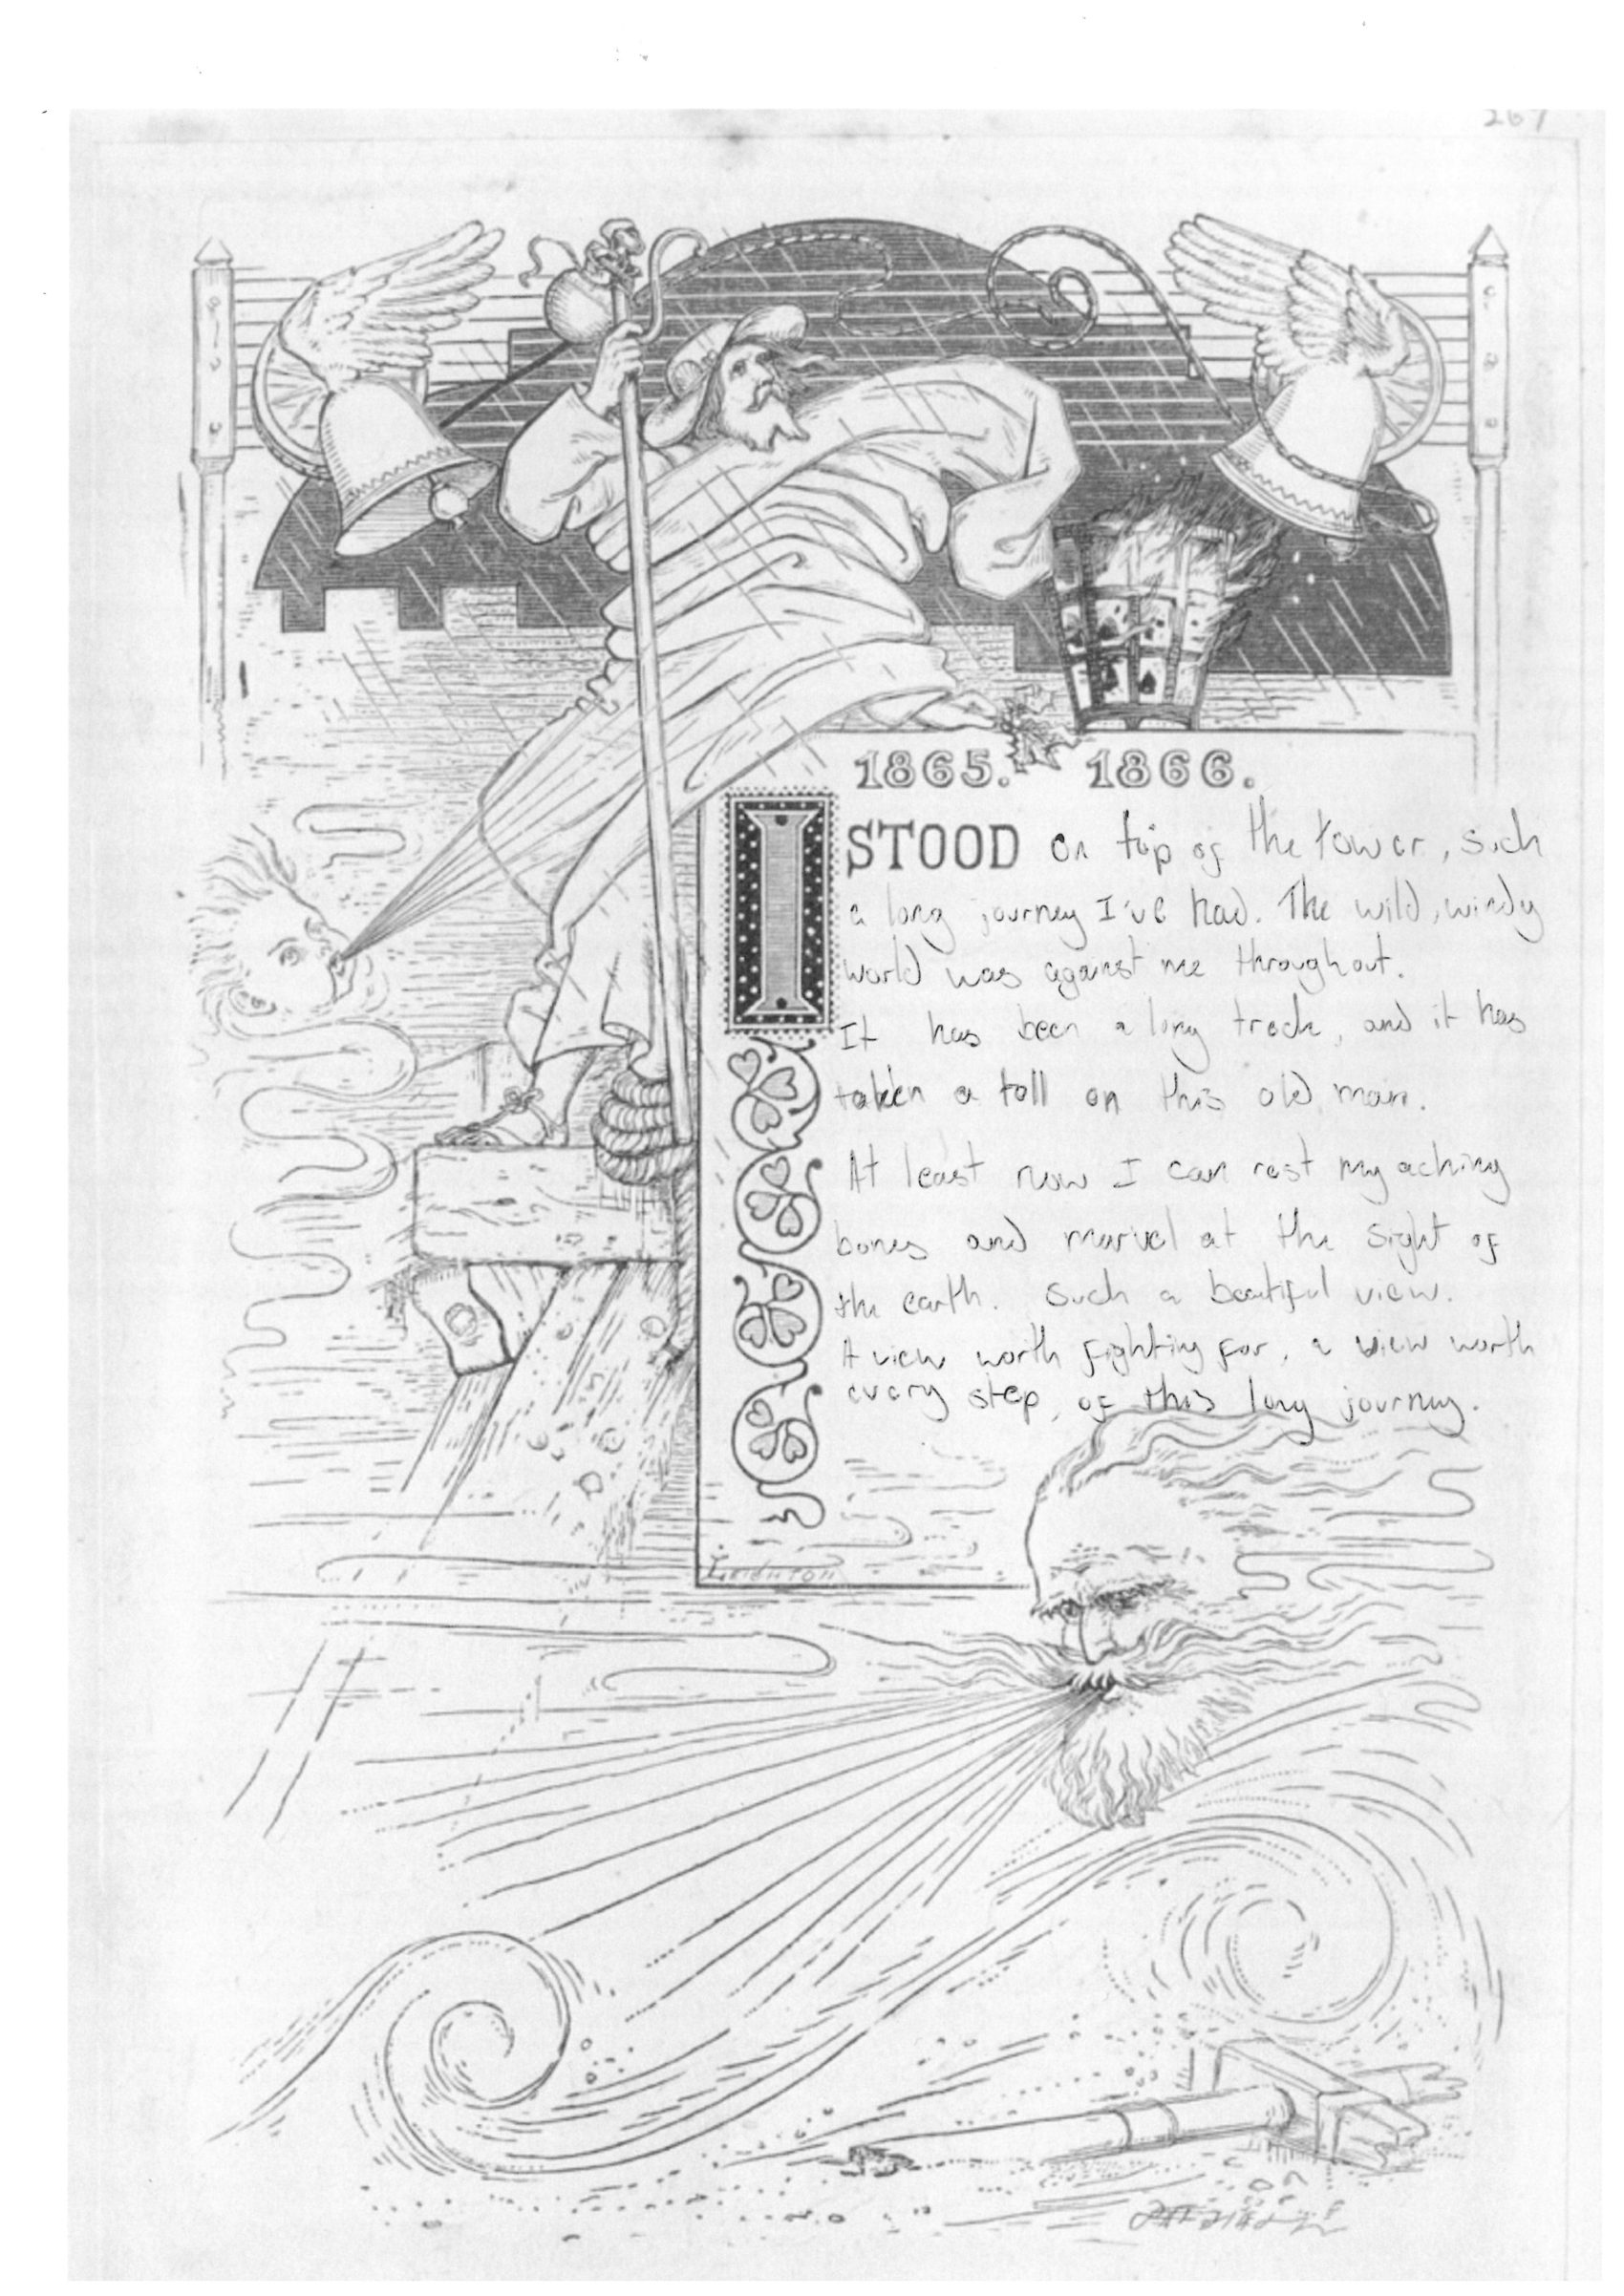 267
1865. 1866.
I STOOD on top of the tower, such
a long journey I've had. The wild, windy
world was against me throughout.
It has been a long treck, and it has
taken a toll on this old man.
At least now I can rest my aching
bones and marvel at the sight of
the earth. Such a beatiful view.
A view worth fighting for, a view worth
every step, of this long journey.
Leighton